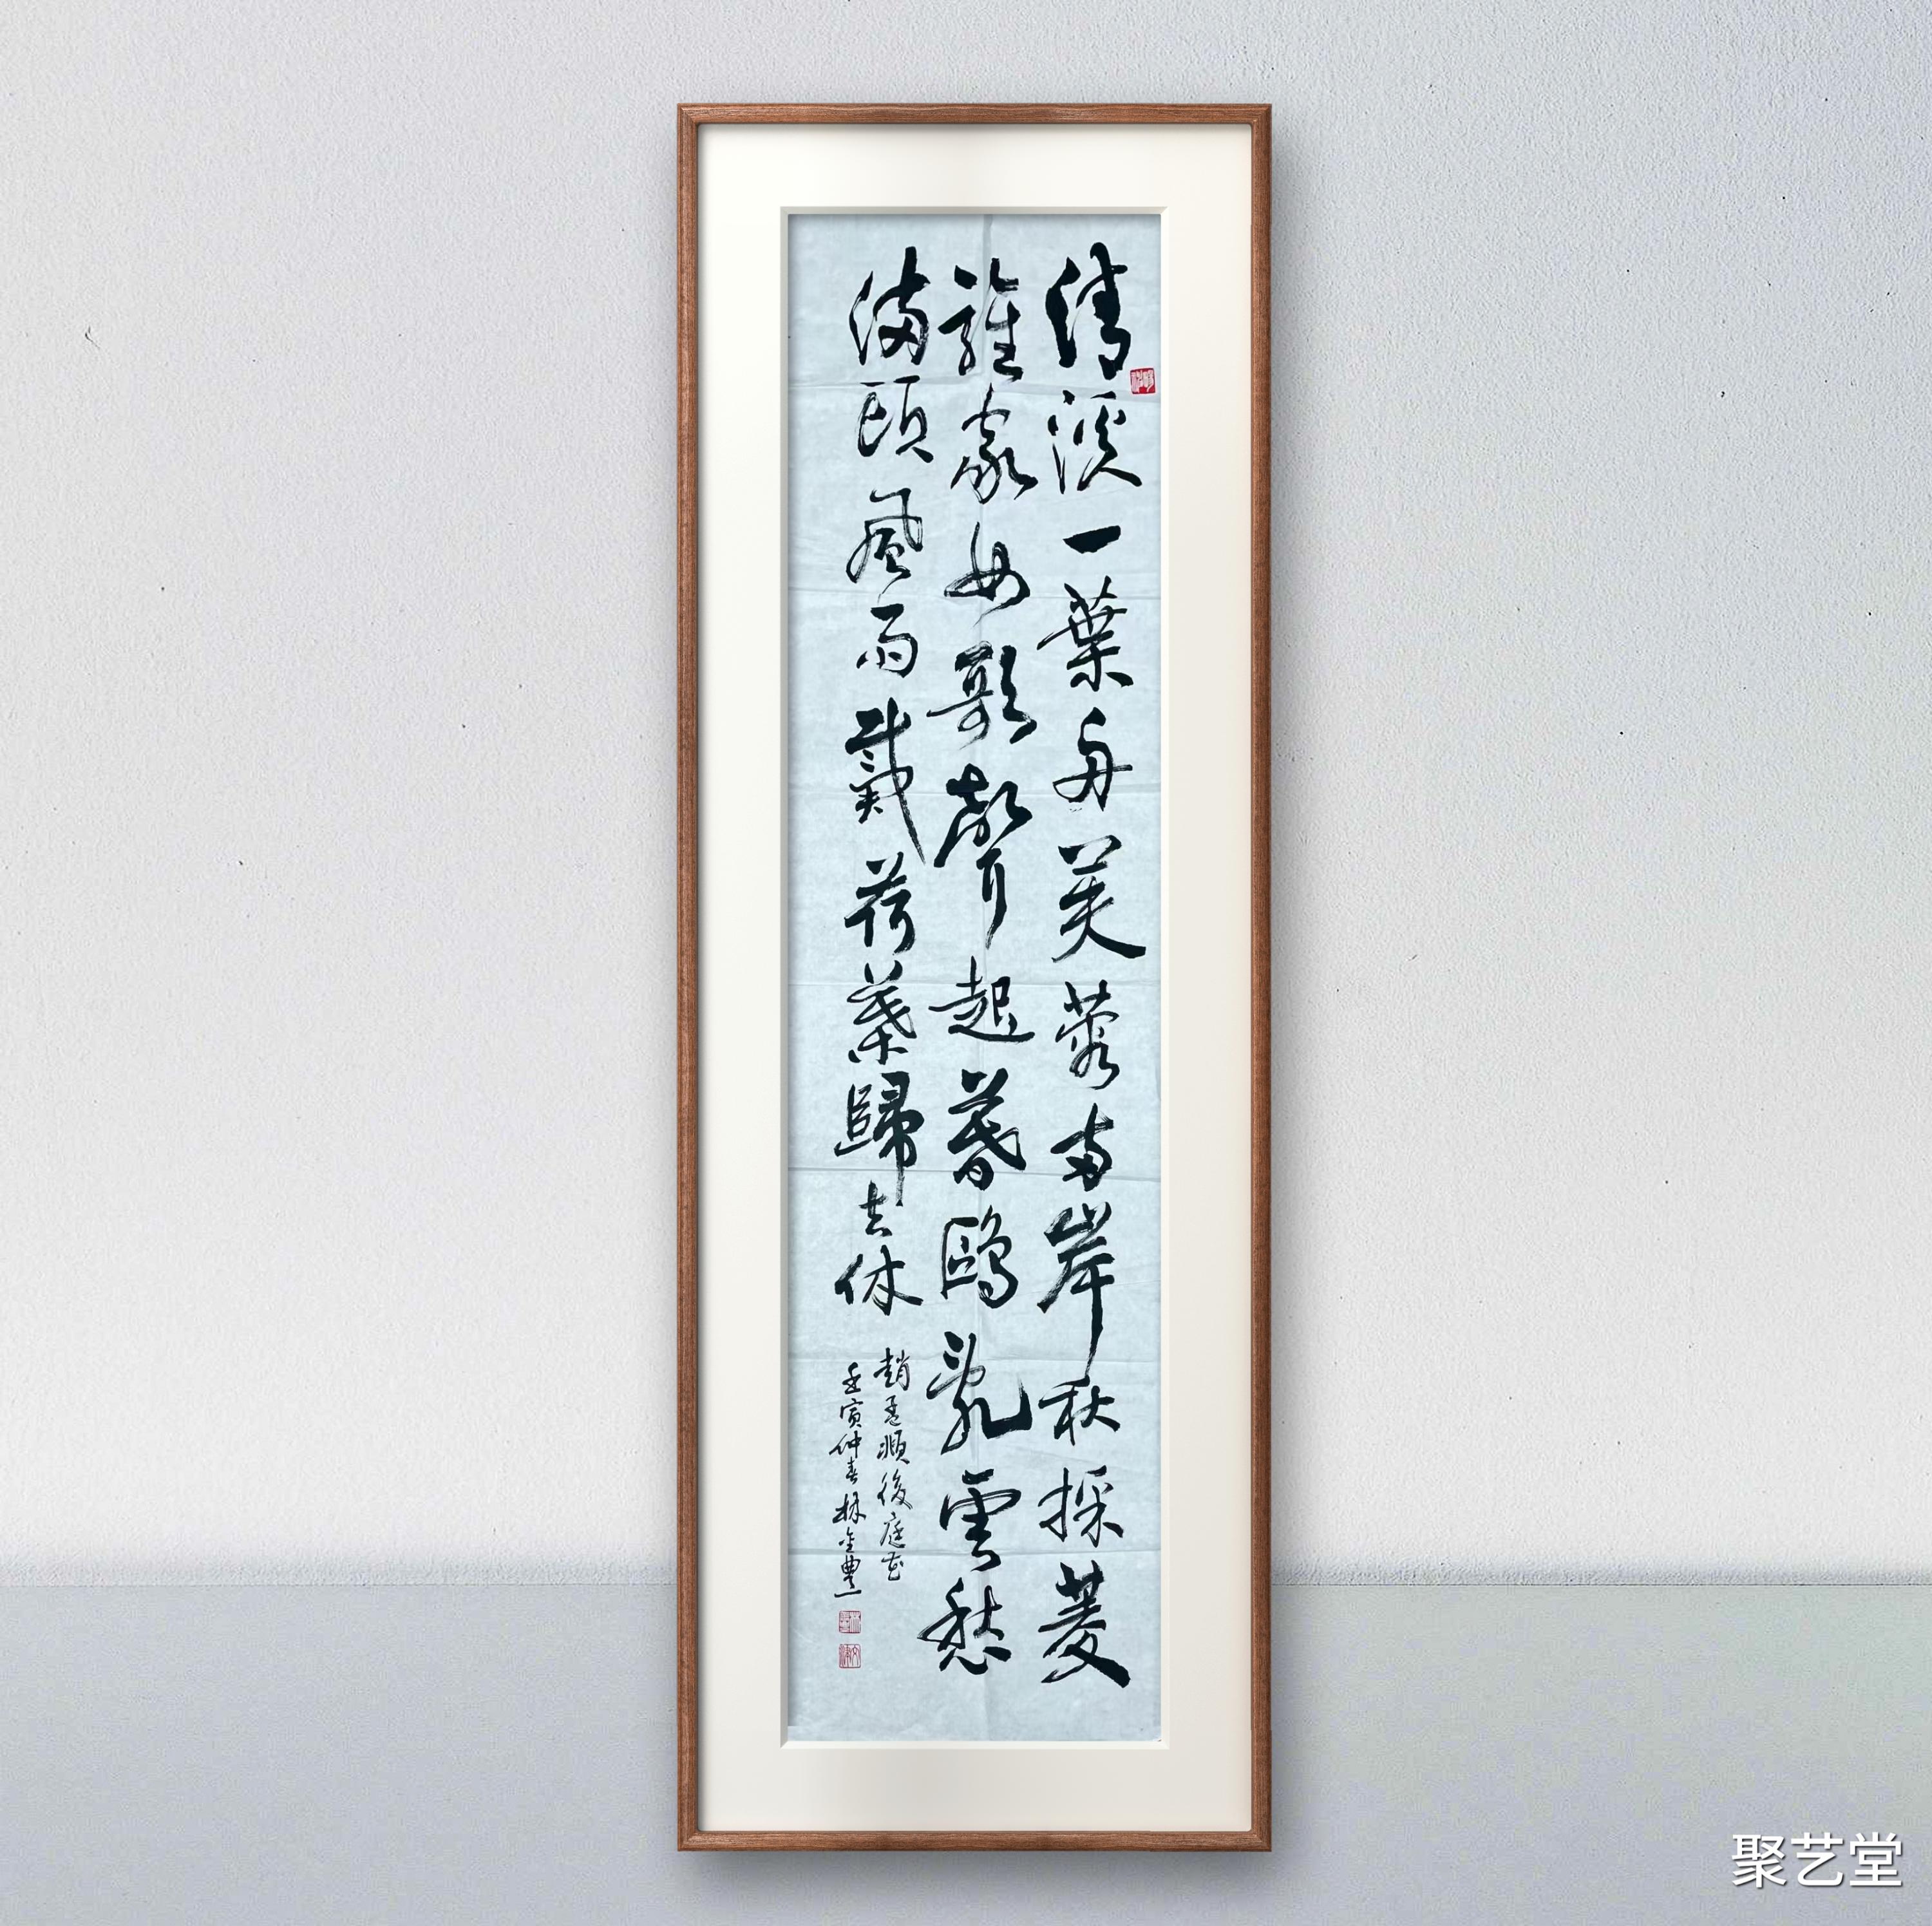 清溪一葉舟芙蓉兩岸秋採菱
誰家女歌聲起暮鷗亂雲愁
滿頭風雨戴荷葉歸去休
趙孟頫後庭花
壬寅仲春林金豐
聚艺堂